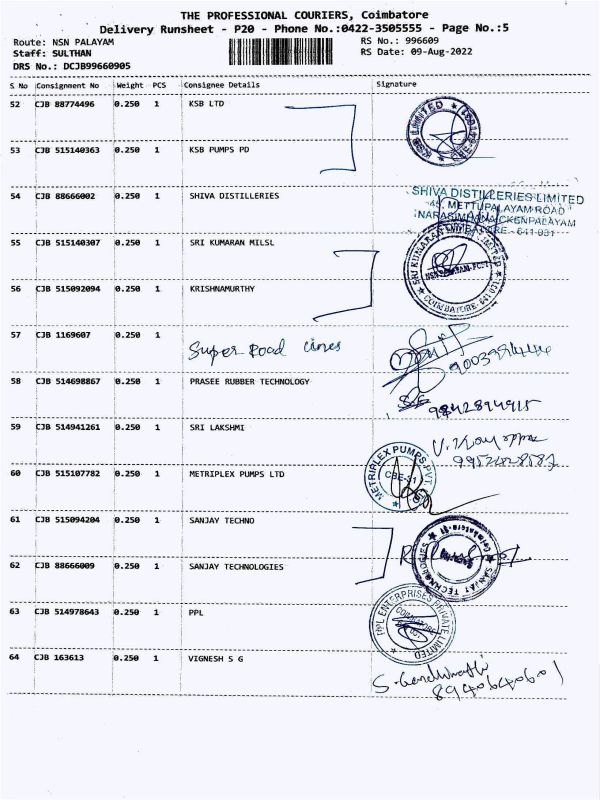 THE PROFESSIONAL COURIERS, Coimbatore
Delivery Runsheet - P20 - Phone No.:0422-3505555 - Page No.:5
Route: NSN PALAYAM RS No.: 996609
Staff: SULTHAN RS Date: 09-Aug-2022
DRS No.: DCJB99660905
S No Consignment No Weight PCS Consignee Details Signature
52 CJB 88774496 0.250 1 KSB LTD
KSB LIMITED
53 CJB 515140363 0.250 1 KSB PUMPS PD
54 CJB 88666002 0.250 1 SHIVA DISTILLERIES
SHIVA DISTILLERIES LIMITED
METTUPALAYAM ROAD
55 CJB 515140307 0.250 1 SRI KUMARAN MILSL
SRI KUMARAN LIMITED
COIMBATORE
56 CJB 515092094 0.250 1 KRISHNAMURTHY
57 CJB 1169607 0.250 1 Super Road Lines
58 CJB 514698867 0.250 1 PRASEE RUBBER TECHNOLOGY
9842894915
59 CJB 514941261 0.250 1 SRI LAKSHMI
60 CJB 515107782 0.250 1 METRIPLEX PUMPS LTD
METRIPLEX PUMPS PVT
CBE-31
61 CJB 515094204 0.250 1 SANJAY TECHNO
62 CJB 88666009 0.250 1 SANJAY TECHNOLOGIES
SANJAY TECHNOLOGIES
63 CJB 514978643 0.250 1 PPL
PPL ENTERPRISES PRIVATE LIMITED
COIMBATORE
64 CJB 163613 0.250 1 VIGNESH S G
8940640601